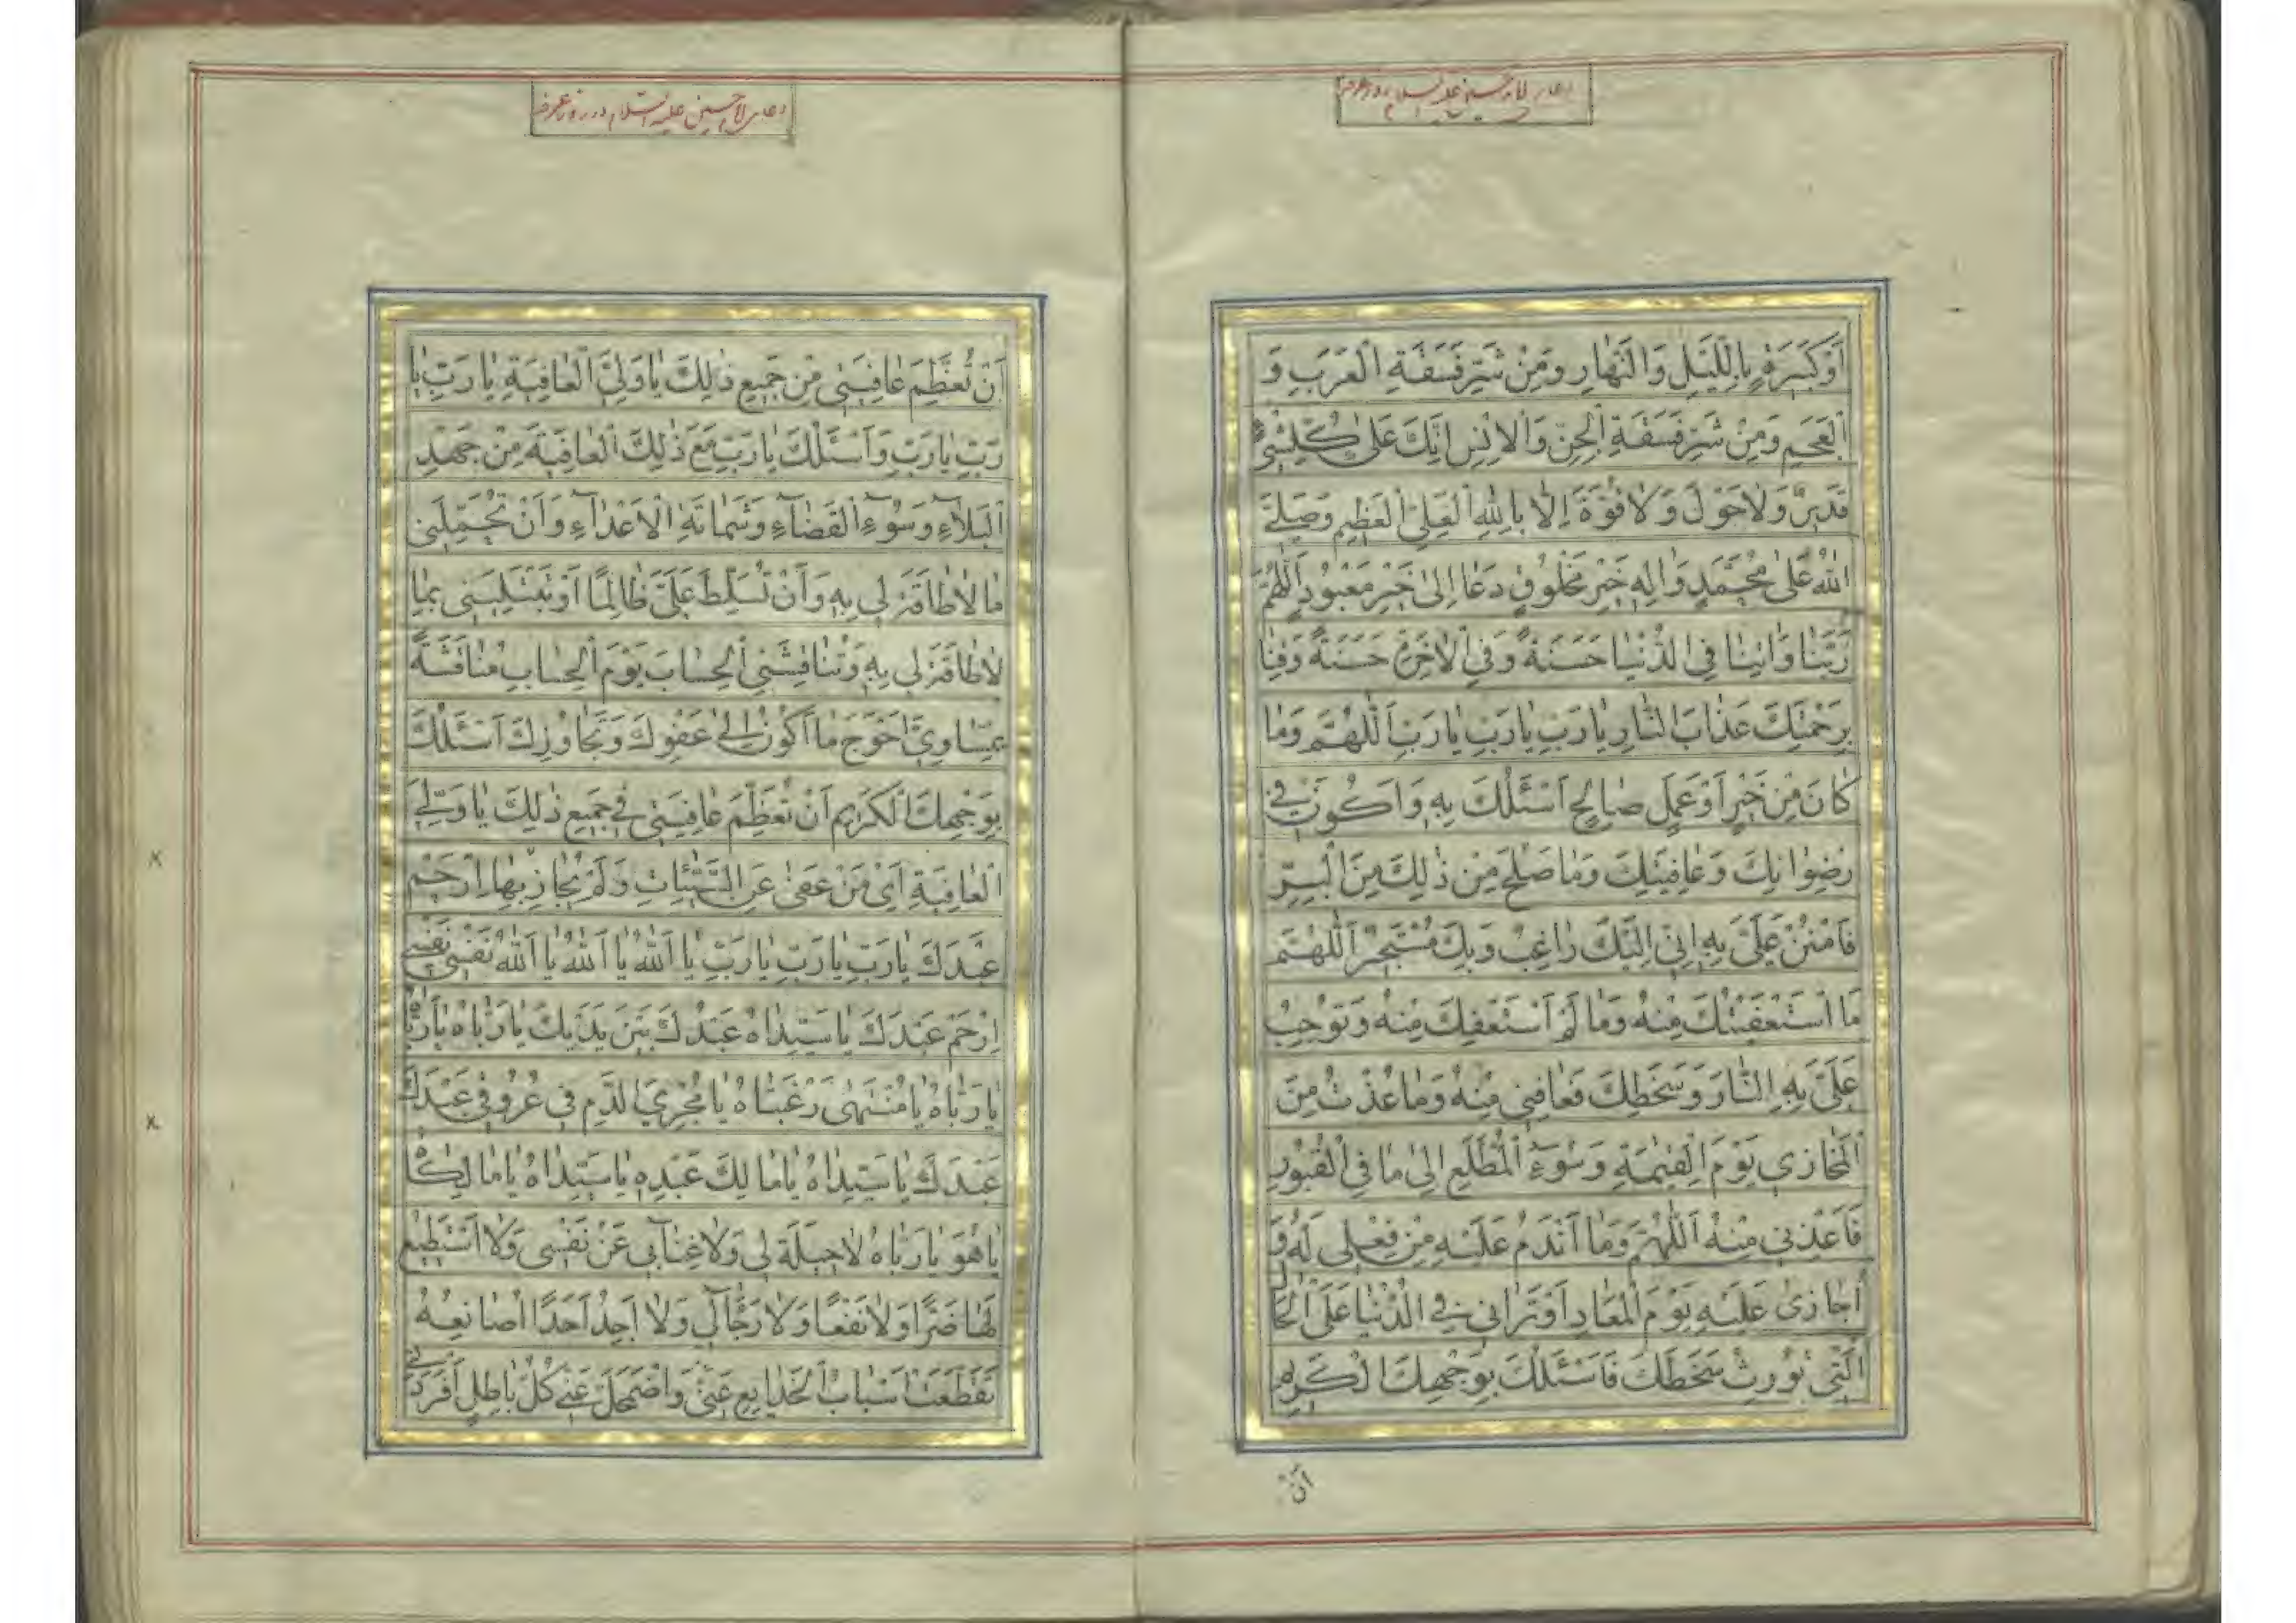 دعای امام حسین علیه السلام در روز عرفه
أَوْ كَبِيرَةٍ بِاللَّيْلِ وَالنَّهارِ وَمِنْ شَرِّ فَسَقَةِ الْعَرَبِ وَ
الْعَجَمِ وَمِنْ شَرِّ فَسَقَةِ الْجِنِّ وَالْاِنْسِ اِنَّكَ عَلىٰ كُلِّ شَيْءٍ
قَدِيرٌ وَلا حَوْلَ وَلا قُوَّةَ اِلّا بِاللهِ الْعَلِيِّ الْعَظِيمِ وَصَلَّى
اللهُ عَلىٰ مُحَمَّدٍ وَالِهِ خَيْرِ مَخْلُوقٍ دَعا اِلىٰ خَيْرِ مَعْبُودٍ اَللّٰهُمَّ
رَبَّنا وَاتِنا فِي الدُّنْيا حَسَنَةً وَفِي الْاخِرَةِ حَسَنَةً وَقِنا
بِرَحْمَتِكَ عَذابَ النّارِ يا رَبِّ يا رَبِّ يا رَبِّ اَللّٰهُمَّ وَما
كانَ مِنْ خَيْرٍ اَوْ عَمَلٍ صالِحٍ اَسْئَلُكَ بِهِ وَاَكُونُ فِي
رِضْوانِكَ وَعافِيَتِكَ وَما صَلَحَ مِنْ ذٰلِكَ مِنَ الْبِرِّ
فَامْنُنْ عَلَيَّ بِهِ اِنِّي اِلَيْكَ راغِبٌ وَبِكَ مُسْتَجِيرٌ اَللّٰهُمَّ
مَا اسْتَعْفَيْتُكَ مِنْهُ وَما لَمْ اَسْتَعْفِكَ مِنْهُ وَتُوجِبُ
عَلَيَّ بِهِ النّارَ وَسَخَطَكَ فَعافِنِي مِنْهُ وَما عُذْتُ مِنَ
الْمَخازِي يَوْمَ الْقِيٰمَةِ وَسُوءِ الْمُطَّلَعِ اِلىٰ ما فِي الْقُبُورِ
فَاَعِذْنِي مِنْهُ اَللّٰهُمَّ وَما اَنْدَمُ عَلَيْهِ مِنْ فِعْلِي لَهُ وَ
اُجازىٰ عَلَيْهِ يَوْمَ الْمَعادِ اَوْ تَرانِي فِي الدُّنْيا عَلَى الْحالِ
الَّتِي تُورِثُ سَخَطَكَ فَاَسْئَلُكَ بِوَجْهِكَ الْكَرِيمِ
اَنْ
دعای امام حسین علیه السلام در روز عرفه
اَنْ تُعَظِّمَ عافِيَتِي مِنْ جَمِيعِ ذٰلِكَ يا وَلِيَّ الْعافِيَةِ يا رَبِّ يا
رَبِّ يا رَبِّ وَاَسْئَلُكَ يا رَبِّ مَعَ ذٰلِكَ الْعافِيَةَ مِنْ جَهْدِ
الْبَلآءِ وَسُوءِ الْقَضآءِ وَشَماتَةِ الْاَعْدآءِ وَاَنْ تُحَمِّلَنِي
ما لا طاقَةَ لِي بِهِ وَاَنْ تُسَلِّطَ عَلَيَّ ظالِمًا اَوْ تَبْتَلِيَنِي بِما
لا طاقَةَ لِي بِهِ وَتُناقِشَنِي الْحِسابَ يَوْمَ الْحِسابِ مُناقَشَةً
بِمَساوِيَّ اَحْوَجَ ما اَكُونُ اِلىٰ عَفْوِكَ وَتَجاوُزِكَ اَسْئَلُكَ
بِوَجْهِكَ الْكَرِيمِ اَنْ تُعَظِّمَ عافِيَتِي فِي جَمِيعِ ذٰلِكَ يا وَلِيَّ
الْعافِيَةِ اَيْ مَنْ عَفىٰ عَنِ السَّيِّئاتِ وَلَمْ يُجازِ بِها اِرْحَمْ
عَبْدَكَ يا رَبِّ يا رَبِّ يا رَبِّ يا اَللهُ يا اَللهُ يا اَللهُ نَفْسِي نَفْسِي
اِرْحَمْ عَبْدَكَ يا سَيِّداهُ عَبْدُكَ بَيْنَ يَدَيْكَ يا رَبّاهُ يا رَبّاهُ
يا رَبّاهُ يا مُنْتَهىٰ رَغْبَتاهُ يا مُجْرِيَ الدَّمِ فِي عُرُوقِي عَبْدُكَ
عَبْدُكَ يا سَيِّداهُ يا مالِكَ عَبْدِهِ يا سَيِّداهُ يا مالِكاهُ
يا هُوَ يا رَبّاهُ لا حِيلَةَ لِي وَلا غِنآ بِي عَنْ نَفْسِي وَلا اَسْتَطِيعُ
لَها ضَرًّا وَلا نَفْعًا وَلا رَجآ لِي وَلا اَجِدُ اَحَدًا اُصانِعُهُ
تَقَطَّعَتْ اَسْبابُ الْخَدايِعِ عَنِّي وَاضْمَحَلَّ عَنِّي كُلُّ باطِلٍ اَفْرَدَنِي